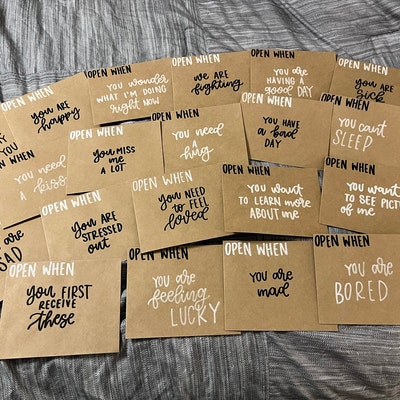 OPEN WHEN
you ARE
happy
OPEN WHEN
you wonder
WHAT I'M DOING
right NOW
OPEN WHEN
we ARE
fighting
OPEN WHEN
you ARE
HAVING A
good DAY
OPEN WHEN
you ARE
SICK
WHEN
you NEED
a kiss
OPEN WHEN
you MISS
me
A LOT
OPEN WHEN
you NEED
a
hug
OPEN WHEN
you HAVE
a bad
DAY
OPEN WHEN
you CAN'T
SLEEP
you are
SAD
OPEN WHEN
you ARE
STRESSED
out
OPEN WHEN
you NEED
to FEEL
loved
OPEN WHEN
you WANT
to LEARN more
ABOUT me
OPEN WHEN
you WANT
to SEE
of me
OPEN WHEN
you FIRST
RECEIVE
these
OPEN WHEN
you are
feeling
LUCKY
OPEN WHEN
you are
mad
OPEN WHEN
you are
BORED